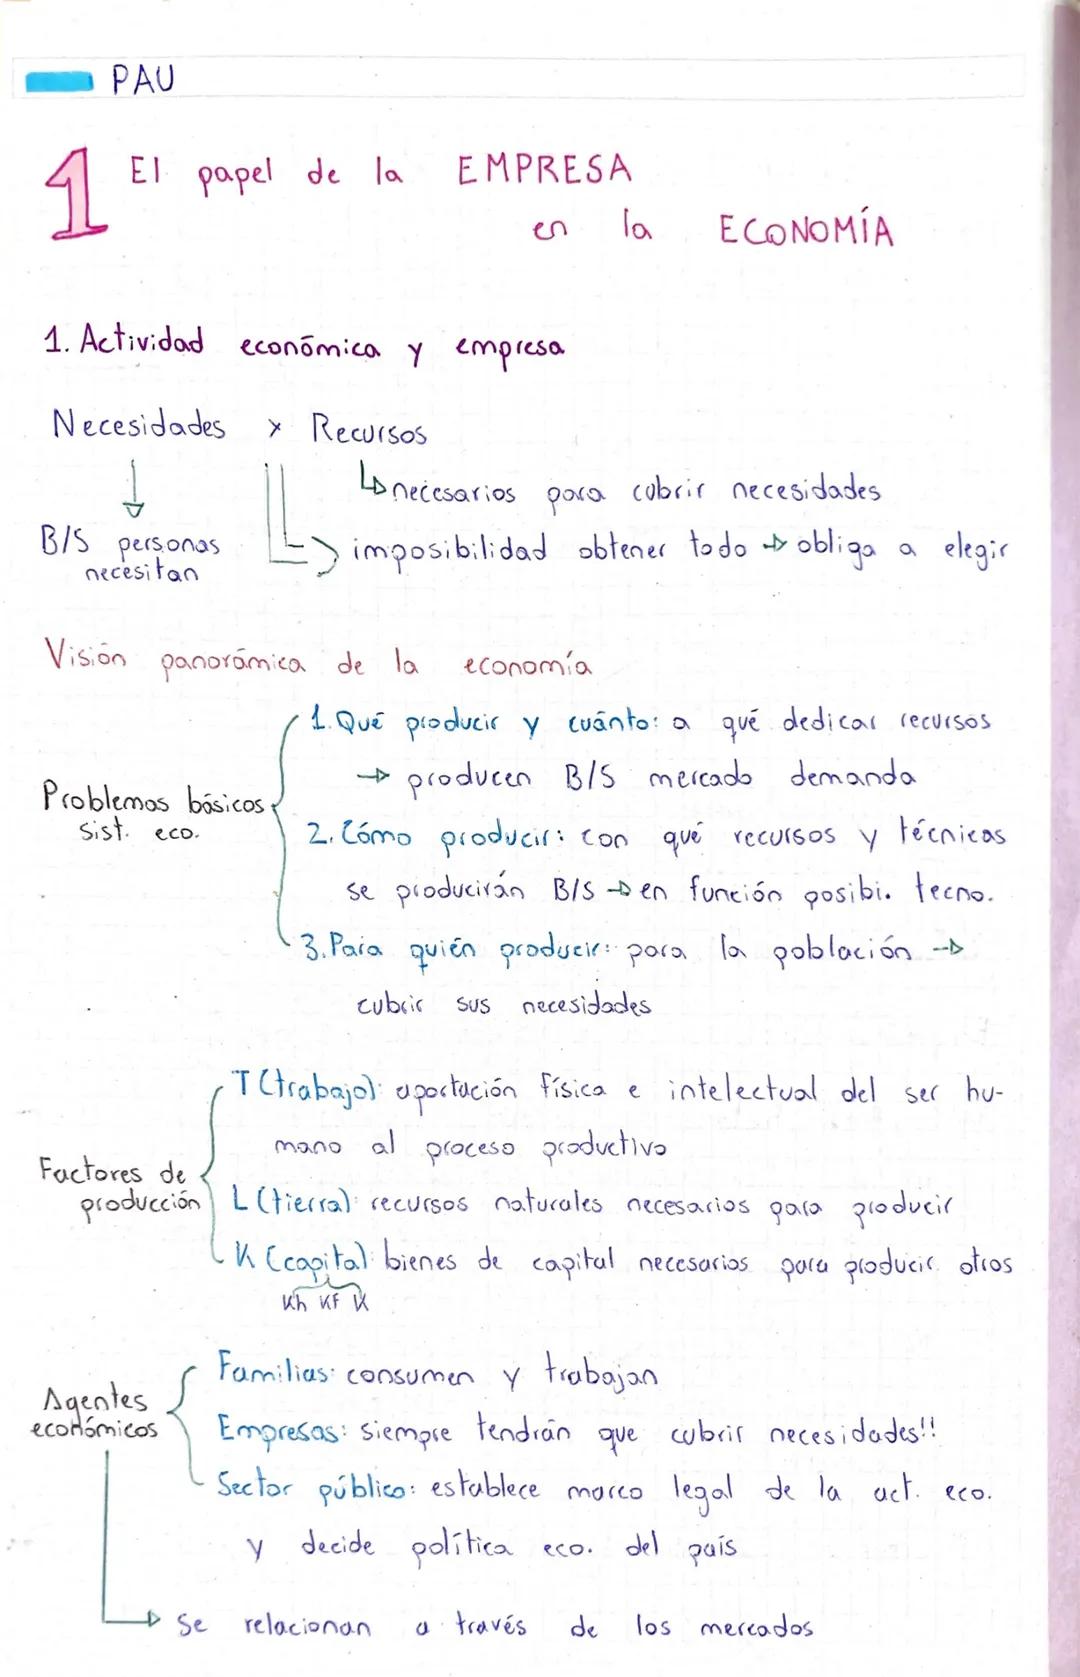 PAU
1 El papel de la EMPRESA
en la ECONOMÍA
1. Actividad económica y empresa
Necesidades x Recursos
necesarios para cubrir necesidades
B/S personas
necesitan
imposibilidad obtener todo → obliga a elegir
Visión panorámica de la economía
Problemas básicos
sist. eco.
1. Qué producir y cuánto: a qué dedicar recursos
→ producen B/S mercado demanda
2. Cómo producir: con qué recursos y técnicas
se producirán B/S → en función posibi. tecno.
3. Para quién producir: para la población →
cubrir sus necesidades
Factores de
producción
T (trabajo): aportación física e intelectual del ser hu-
mano al proceso productivo
L (tierra): recursos naturales necesarios para producir
K (capital): bienes de capital necesarios para producir otros
Kh Kf K
Agentes
económicos
Familias: consumen y trabajan
Empresas: siempre tendrán que cubrir necesidades!!
Sector público: establece marco legal de la act. eco.
y decide política eco. del país
→ se relacionan a través de los mercados